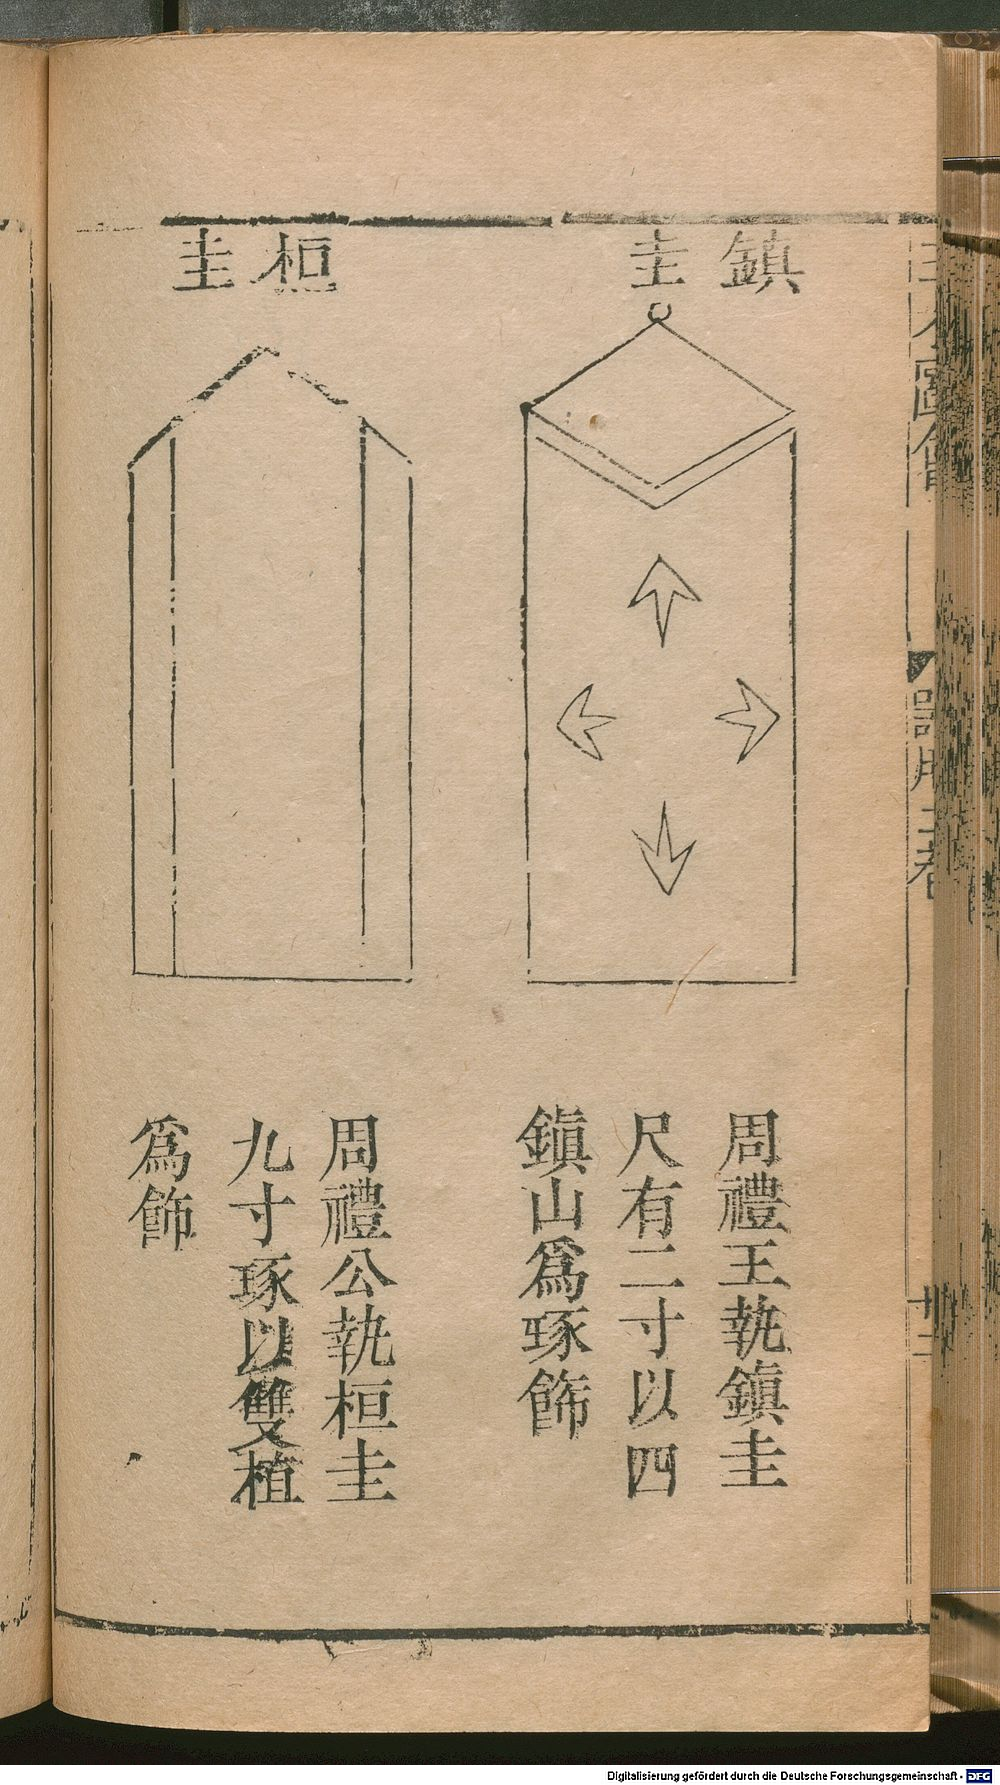 鎮圭
周禮王執鎮圭
尺有二寸以四
鎮山爲琢飾
桓圭
周禮公執桓圭
九寸琢以雙植
爲飾
Digitalisierung gefördert durch die Deutsche Forschungsgemeinschaft - DFG